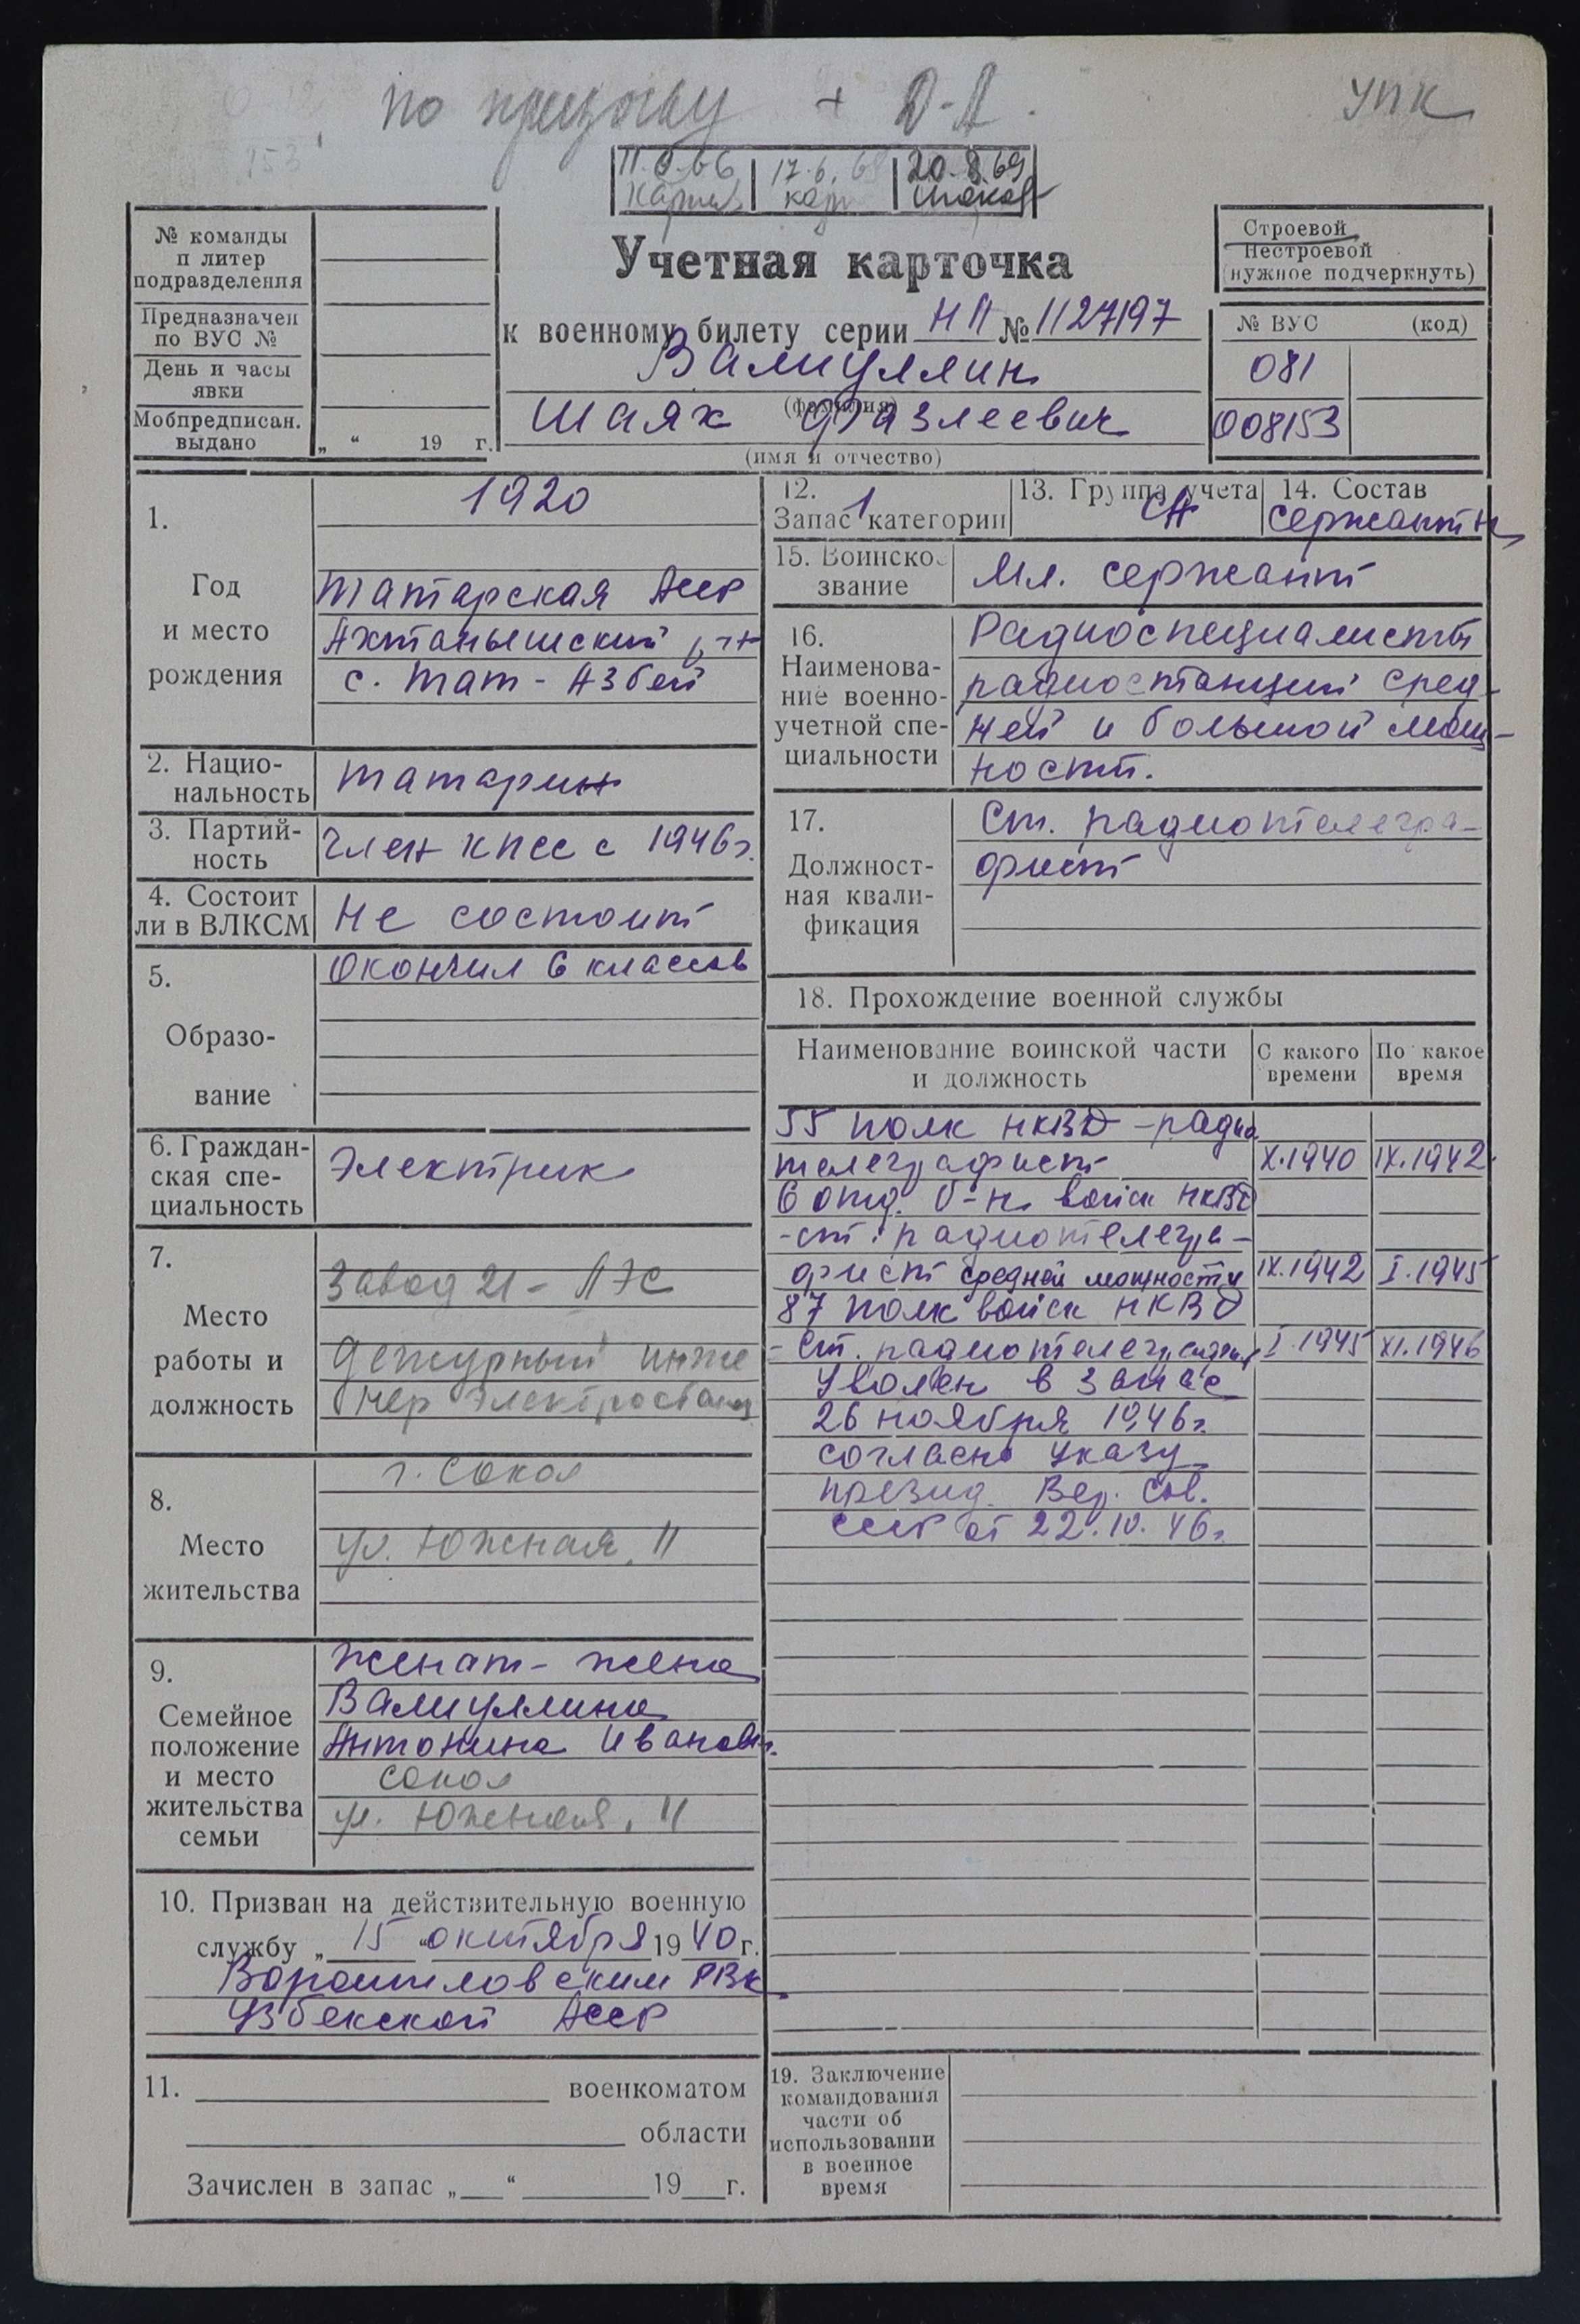 по призыву + Д-А.
УПК
11.6.66 17.6.68 20.8.69
№ команды
и литер
подразделения
Предназначен
по ВУС №
День и часы
явки
Мобпредписан.
выдано
„ “ 19 г.
Учетная карточка
к военному билету серии НП № 1127197
Валиуллин
(фамилия)
Шаях Фазлеевич
(имя и отчество)
Строевой
Нестроевой
(нужное подчеркнуть)
№ ВУС (код)
081
008153
1.
Год
и место
рождения
1920
Татарская АССР
Актанышский р-н
с. Тат-Азбей
2. Нацио-
нальность
татарин
3. Партий-
ность
член КПСС с 1946г.
4. Состоит
ли в ВЛКСМ
Не состоит
5.
Образо-
вание
Окончил 6 классов
6. Граждан-
ская спе-
циальность
Электрик
7.
Место
работы и
должность
Завод 21-
дежурный инже
нер электростанц
8.
Место
жительства
г. Сокол
ул. Южная, 11
9.
Семейное
положение
и место
жительства
семьи
Женат - жена
Валиуллина
Антонина Ивановн.
Сокол
ул. Южная, 11
10. Призван на действительную военную
службу „ 15 “ октября 1940 г.
Ворошиловским РВК
Узбекской АССР
11. военкоматом
области
Зачислен в запас „ “ 19 г.
12.
Запас 1 категории
13. Группа учета
СА
14. Состав
сержантск
15. Воинское
звание
Мл. сержант
16.
Наименова-
ние военно-
учетной спе-
циальности
Радиоспециалисты
радиостанций сред-
ней и большой мощ-
ности.
17.
Должност-
ная квали-
фикация
Ст. радиотелегра-
фист
18. Прохождение военной службы
Наименование воинской части
и должность
С какого
времени
По какое
время
55 полк НКВД - радио
телеграфист X.1940 IX.1942
6 отд. б-н войск НКВД
- ст. радиотелегра-
фист средней мощности IX.1942 I.1945
87 полк войск НКВД
- Ст. радиотелеграфист I.1945 XI.1946
Уволен в запас
26 ноября 1946г.
согласно Указу
презид. Вер. Сов.
СССР от 22.10.46г.
19. Заключение
командования
части об
использовании
в военное
время